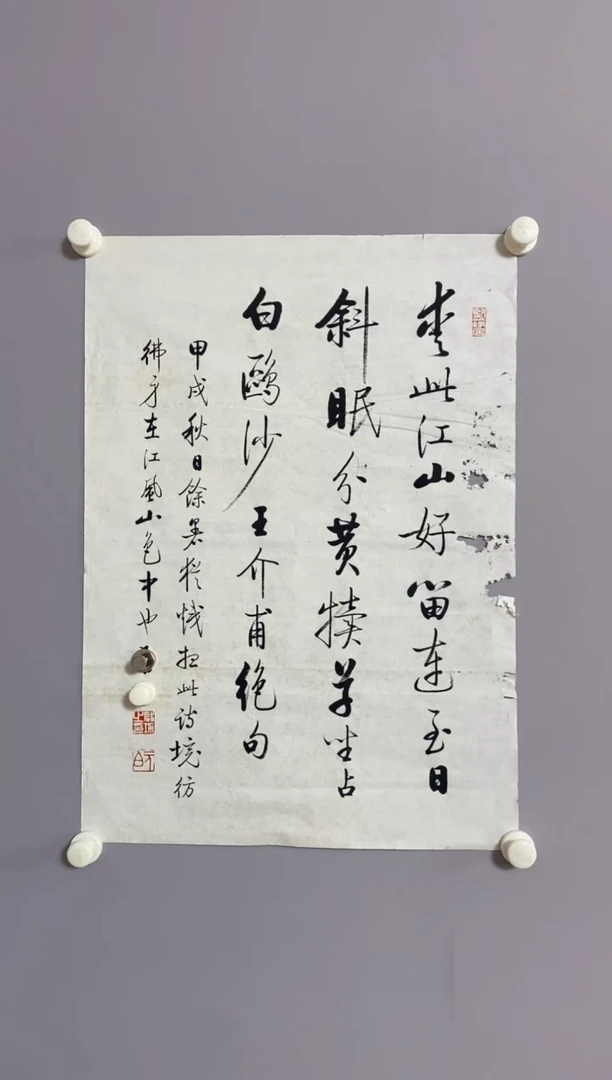 爱此江山好留连至日
斜眠分黄犊草坐占
白鸥沙王介甫绝句
甲戌秋日馀暑犹炽扫此诗境彷
彿身在江风山色中也